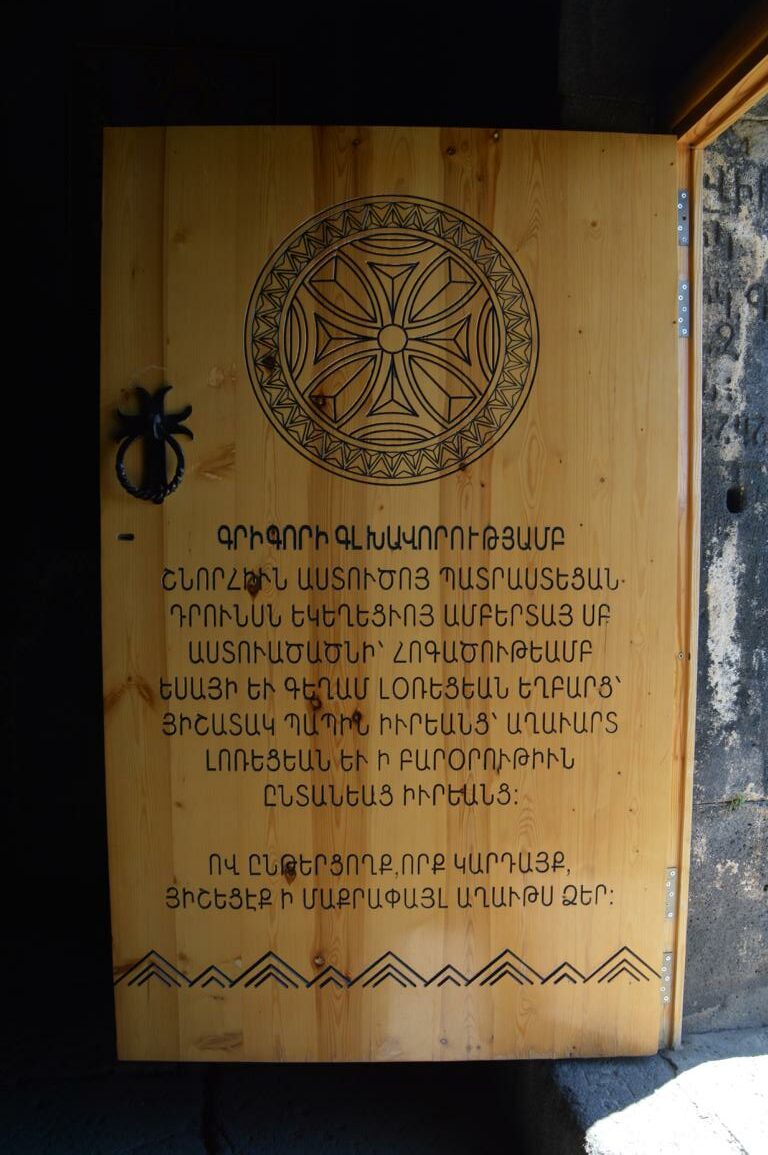 ԳՐԻԳՈՐԻ ԳԼԽԱՎՈՐՈՒԹՅԱՄԲ
ՇՆՈՐՀԻՒՆ ԱՍՏՈՒԾՈՅ ՊԱՏՐԱՍՏԵՑԱՆ
ԴՐՈՒՆՍՆ ԵԿԵՂԵՑՒՈՅ ԱՄԲԵՐՏԱՅ ՍԲ
ԱՍՏՈՒԱԾԱԾՆԻ՝ ՀՈԳԱԾՈՒԹԵԱՄԲ
ԵՍԱՅԻ ԵՒ ԳԵՂԱՄ ԼՕՌԵՑԵԱՆ ԵՂԲԱՐՑ՝
ՅԻՇԱՏԱԿ ՊԱՊԻՆ ԻՒՐԵԱՆՑ՝ ԱՂԱՒԱՐՏ
ԼՈՌԵՑԵԱՆ ԵՒ Ի ԲԱՐՕՐՈՒԹԻՒՆ
ԸՆՏԱՆԵԱՑ ԻՒՐԵԱՆՑ։
ՈՎ ԸՆԹԵՐՑՈՂՔ,ՈՐՔ ԿԱՐԴԱՅՔ,
ՅԻՇԵՑԷՔ Ի ՄԱՔՐԱՓԱՅԼ ԱՂԱՒԹՍ ՁԵՐ։